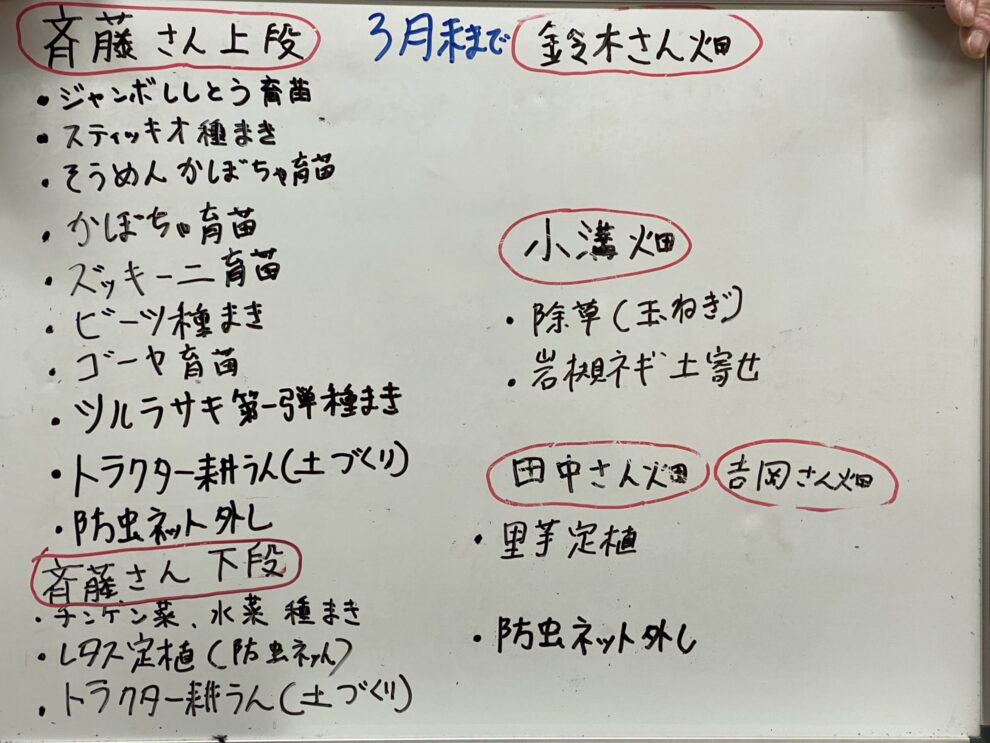 斉藤さん上段
・ジャンボししとう育苗
・スティッキオ種まき
・そうめんかぼちゃ育苗
・かぼちゃ育苗
・ズッキーニ育苗
・ビーツ種まき
・ゴーヤ育苗
・ツルラサキ第一弾種まき
・トラクター耕うん(土づくり)
・防虫ネット外し
斉藤さん下段
・チンゲン菜、水菜種まき
・レタス定植(防虫ネット)
・トラクター耕うん(土づくり)
3月末まで
鈴木さん畑
小溝畑
・除草(玉ねぎ)
・岩槻ネギ土寄せ
田中さん畑 吉岡さん畑
・里芋定植
・防虫ネット外し